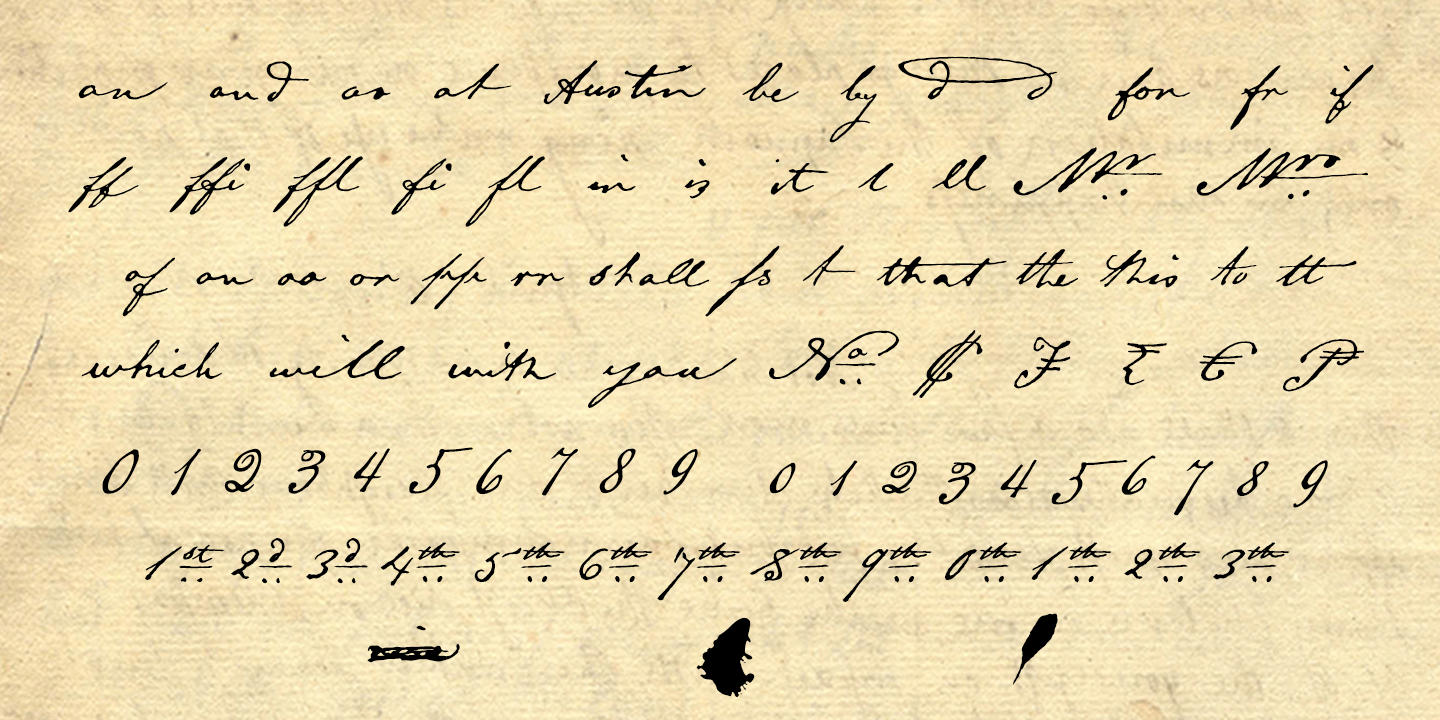 an and as at Austin be by d d for fr if
ff ffi ffl fi fl in is it l ll Mr. Mrs.
of on os or pp rr shall ſs t that the this to tt
which will with you No. ₡ ₣ ₤ € ₱
0 1 2 3 4 5 6 7 8 9 0 1 2 3 4 5 6 7 8 9
1st 2d 3d 4th 5th 6th 7th 8th 9th 0th 1th 2th 3th